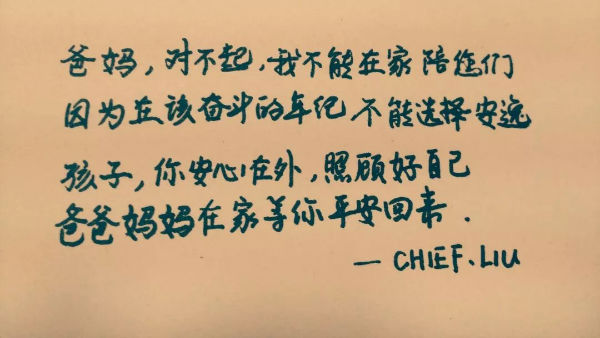 爸妈，对不起，我不能在家陪您们
因为在该奋斗的年纪，不能选择安逸
孩子，你安心在外，照顾好自己
爸爸妈妈在家等你平安回来．
— CHIEF．LIU